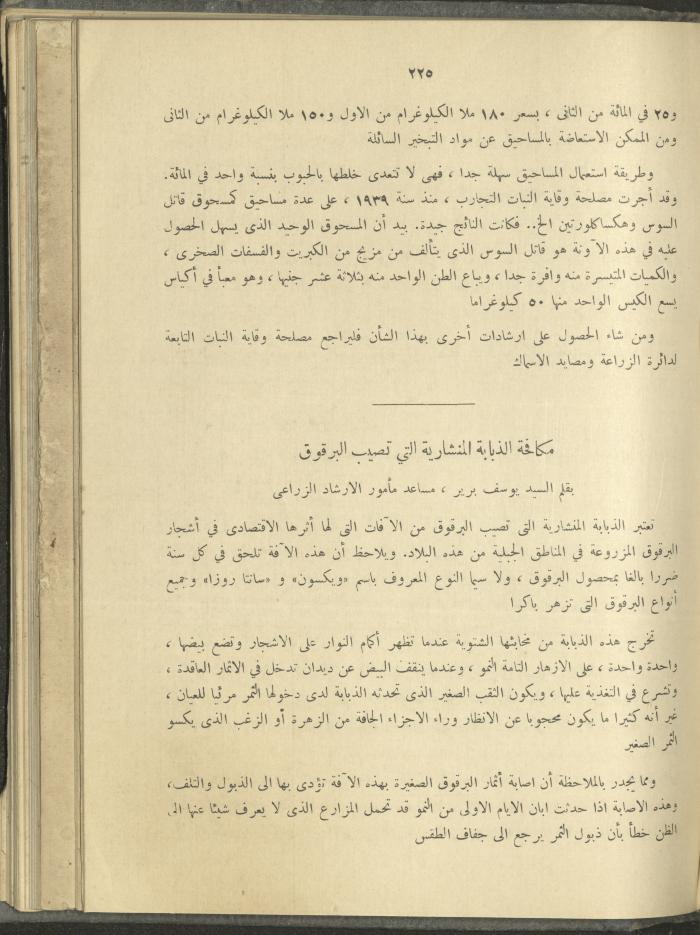 ٢٢٥
و٢٥ في المائة من الثانى ، بسعر ١٨٠ ملا الكيلوغرام من الاول و١٥٠ ملا الكيلوغرام من الثانى
ومن الممكن الاستعاضة بالمساحيق عن مواد التبخير السائلة
وطريقة استعمال المساحيق سهلة جدا ، فهى لا تتعدى خلطها بالحبوب بنسبة واحد في المائة.
وقد أجرت مصلحة وقاية النبات التجارب ، منذ سنة ١٩٣٩ ، على عدة مساحيق كمسحوق قاتل
السوس وهكساكلورتين الخ.. فكانت النائج جيدة. بيد أن المسحوق الوحيد الذى يسهل الحصول
عليه في هذه الآونة هو قاتل السوس الذى يتألف من مزيج من الكبريت والفسفات الصخرى ،
والكميات المتيسرة منه وافرة جدا ، ويباع الطن الواحد منه بثلاثة عشر جنيها ، وهو معبأ في أكياس
يسع الكيس الواحد منها ٥٠ كيلوغراما
ومن شاء الحصول على ارشادات أخرى بهذا الشأن فليراجع مصلحة وقاية النبات التابعة
لدائرة الزراعة ومصايد الاسماك
مكافحة الذبابة المنشارية التي تصيب البرقوق
بقلم السيد يوسف برير ، مساعد مأمور الارشاد الزراعى
تعتبر الذبابة المنشارية التى تصيب البرقوق من الآفات التى لها أثرها الاقتصادى في أشجار
البرقوق المزروعة في المناطق الجبلية من هذه البلاد. ويلاحظ أن هذه الآفة تلحق في كل سنة
ضررا بالغا بمحصول البرقوق ، ولا سيما النوع المعروف باسم «ويكسون» و «سانتا روزا» وجميع
أنواع البرقوق التى تزهر باكرا
تخرج هذه الذبابة من مخابئها الشتوية عندما تظهر أكمام النوار على الاشجار وتضع بيضها ،
واحدة واحدة ، على الازهار التامة النمو ، وعندما ينقف البيض عن ديدان تدخل في الاثمار العاقدة ،
وتشرع في التغذية عليها ، ويكون الثقب الصغير الذى تحدثه الذبابة لدى دخولها الثمر مرئيا للعيان ،
غير أنه كثيرا ما يكون محجوبا عن الانظار وراء الاجزاء الجافة من الزهرة أو الزغب الذى يكسو
الثمر الصغير
ومما يجدر بالملاحظة أن اصابة أثمار البرقوق الصغيرة بهذه الآفة تؤدى بها الى الذبول والتلف،
وهذه الاصابة اذا حدثت ابان الايام الاولى من النمو قد تحمل المزارع الذى لا يعرف شيئا عنها الى
الظن خطأ بأن ذبول الثمر يرجع الى جفاف الطقس